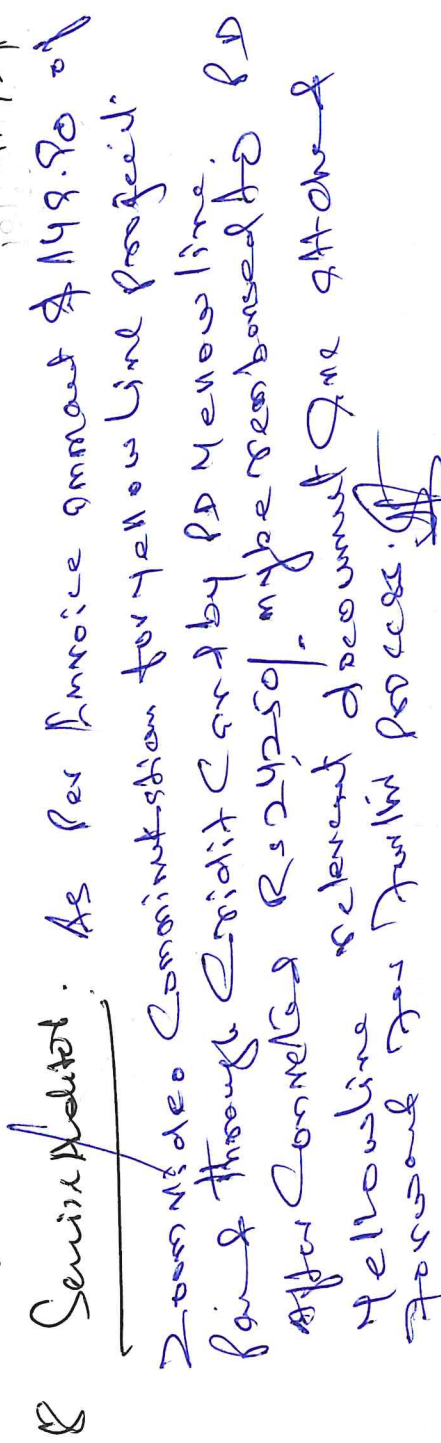 8 Senior Auditor: As Per Invoice ammout $ 149.90 of
Zoom Video Comminutation for Yellow Line Project
Paid through Cridit Card by PD Yellow line.
After Converting Rs 24250/- may be reimbursed to PD
Yellowline relevent document are attached
Forward for Further Process.